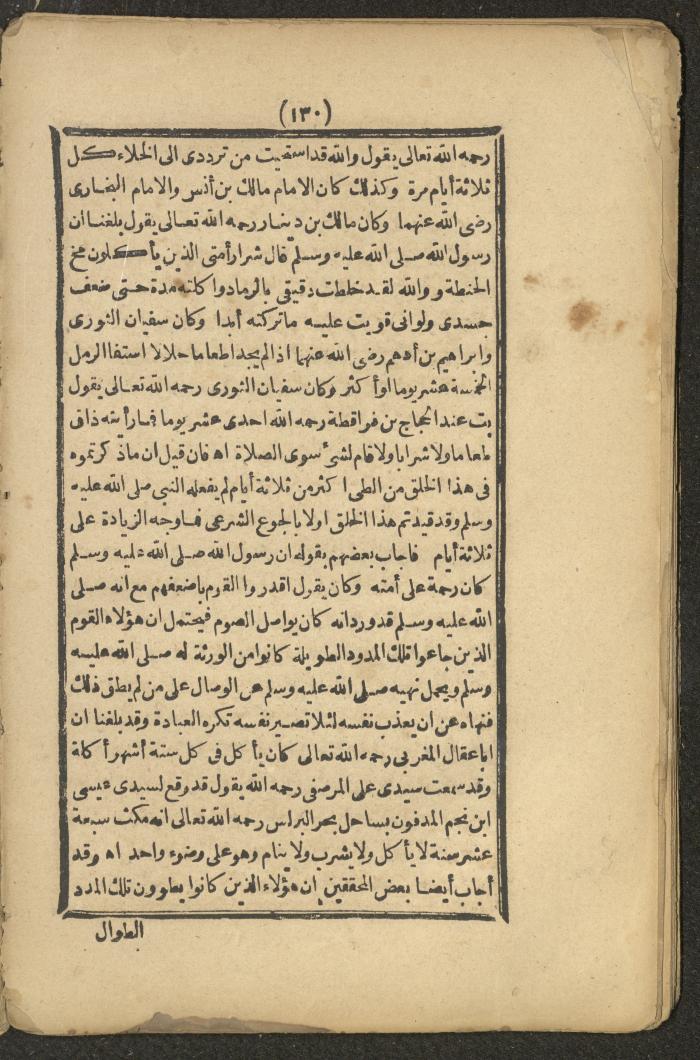 (١٣٠)
رحمه الله تعالى يقول والله قد استحيت من ترددى الى الخلاء كل
ثلاثة أيام مرة وكذلك كان الامام مالك بن أنس والامام البخارى
رضى الله عنهما وكان مالك بن دينار رحمه الله تعالى يقول بلغنا ان
رسول الله صلى الله عليه وسلم قال شرار أمتى الذين يأكلون مخ
الحنطة و والله لقد خلطت دقيقى بالرماد وا كلته مدة حتى ضعف
جسدى ولو انى قويت عليه ما تركته أبدا وكان سفيان الثورى
وابراهيم بن أدهم رضى الله عنهما اذا لم يجدا طعاما حلالا استفا الرمل
الخمسة عشر يوما أوأ كثر وكان سفيان الثورى رحمه الله تعالى يقول
بت عند الحجاج بن فراقصة رحمه الله احدى عشر يوما فما رأيته ذاق
طعاما ولا شرابا ولا قام لشئ سوى الصلاة اه فان قيل ان ماذ كرتموه
فى هذا الخلق من الطى ا كثر من ثلاثة أيام لم يفعله النبى صلى الله عليه
وسلم وقد قيدتم هذا الخلق اولا بالجوع الشرعى فما وجه الزيادة على
ثلاثة أيام فاجاب بعضهم بقوله ان رسول الله صلى الله عليه وسلم
كان رحمة على أمته وكان يقول اقدروا القوم باضعفهم مع انه صلى
الله عليه وسلم قد ورد انه كان يواصل الصوم فيحتمل ان هؤلاء القوم
الذين جاعوا تلك المدد الطويلة كانوا من الورثة له صلى الله عليه
وسلم ويحمل نهيه صلى الله عليه وسلم عن الوصال على من لم يطق ذلك
فنهاه عن ان يعذب نفسه لئلا تصير نفسه تكره العبادة وقد بلغنا ان
اباعقال المغربى رحمه الله تعالى كان يأ كل فى كل ستة أشهر أ كلة
وقد سمعت سيدى على المرصفى رحمه الله يقول قد وقع لسيدى عيسى
ابن نجم المدفون بساحل بحر البرلس رحمه الله تعالى انه مكث سبعة
عشر سنة لا يأ كل ولا يشرب ولا ينام وهو على وضوء واحد اه وقد
أجاب أيضا بعض المحققين بان هؤلاء الذين كانوا يطوون تلك المدد
الطوال